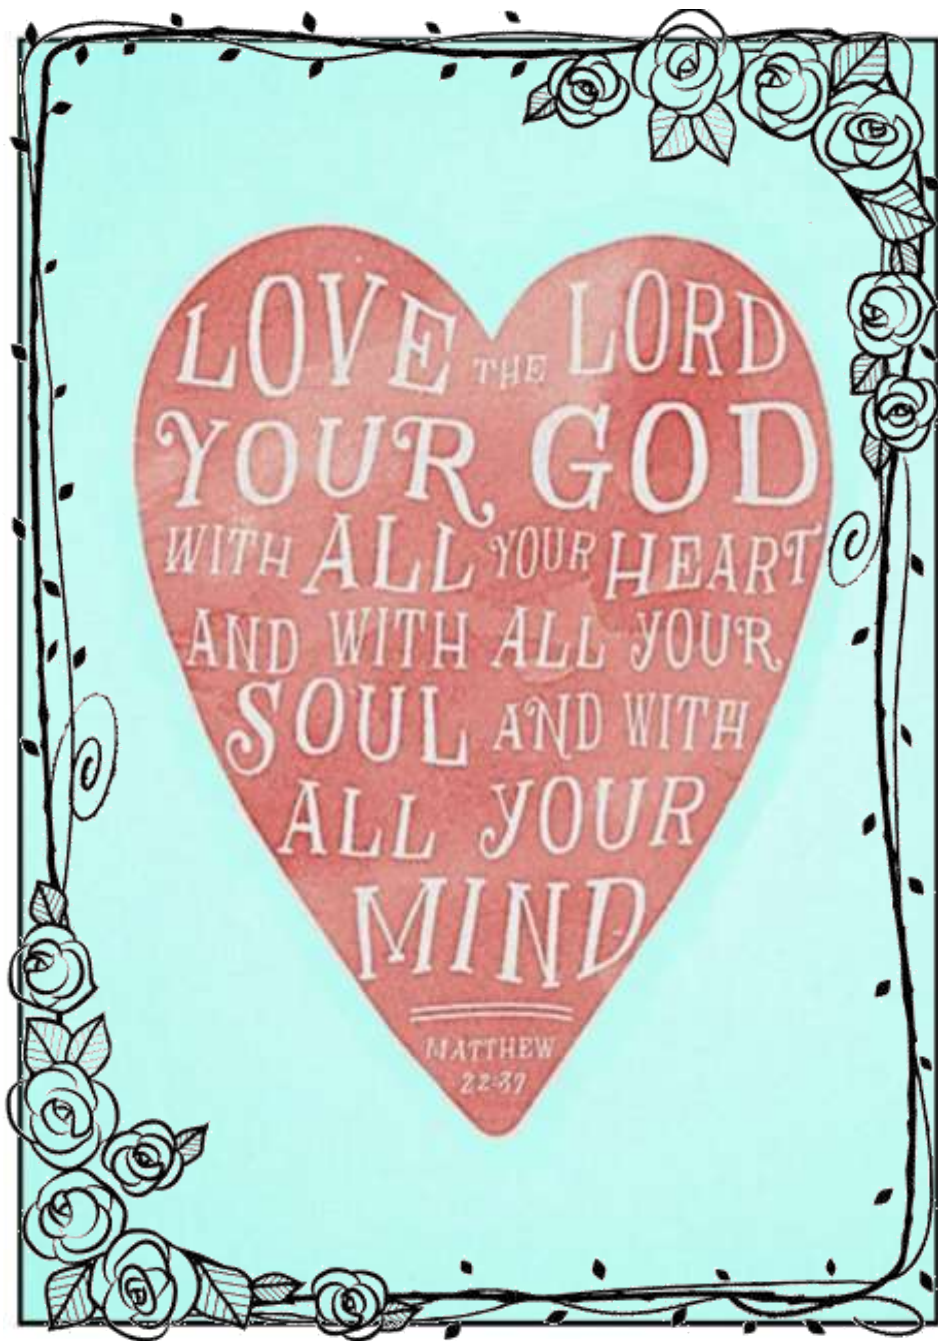 LOVE THE LORD
YOUR GOD
WITH ALL YOUR HEART
AND WITH ALL YOUR
SOUL AND WITH
ALL YOUR
MIND
MATTHEW
22:37